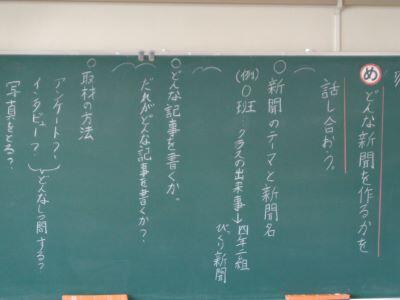 め どんな新聞を作るかを
話し合おう。
○新聞のテーマと新聞名
(例)○班 クラスの出来事→四年二組
びっくり新聞
○どんな記事を書くか。
だれがどんな記事を書くか?
○取材の方法
アンケート?
インタビュー? どんなしつ問する?
写真をとる?